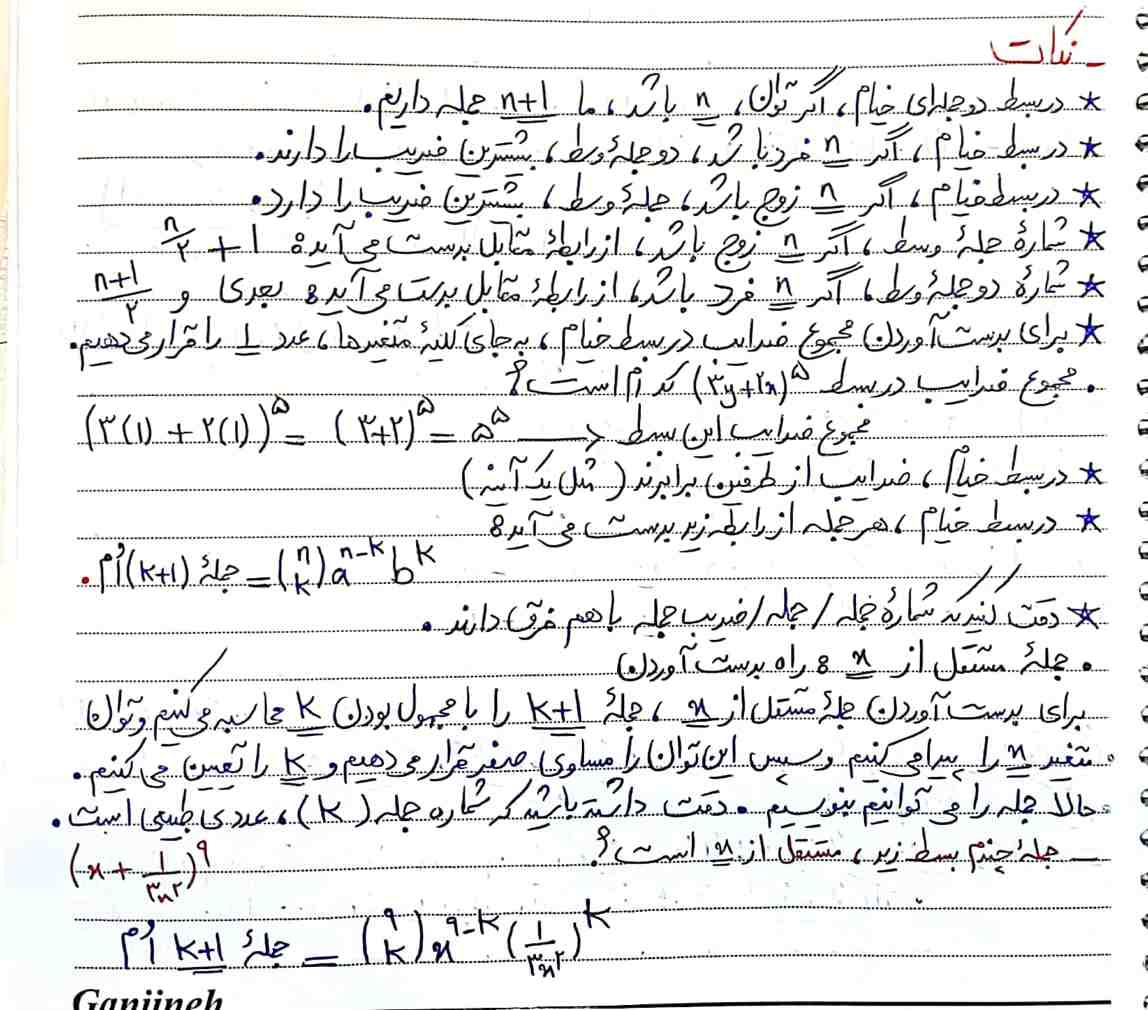 ـ نکات
★ در بسط دو جمله‌ای خیام، اگر توان، n باشد، ما n+1 جمله داریم.
★ در بسط خیام، اگر n فرد باشد، دو جملهٔ وسط، بیشترین ضریب را دارند.
★ در بسط خیام، اگر n زوج باشد، جملهٔ وسط، بیشترین ضریب را دارد.
★ شمارهٔ جملهٔ وسط، اگر n زوج باشد، از رابطهٔ مقابل بدست می‌آید: n/۲ + 1
★ شمارهٔ دو جملهٔ وسط، اگر n فرد باشد، از رابطهٔ مقابل بدست می‌آید: بعدی و (n+1)/۲
★ برای بدست آوردن مجموع ضرایب در بسط خیام، به جای کلیهٔ متغیرها، عدد 1 را قرار می‌دهیم.
. مجموع ضرایب در بسط (۳y+۲x)^۵ کدام است؟
مجموع ضرایب این بسط → (۳(1) + ۲(1))^۵ = (۳+۲)^۵ = ۵^۵
★ در بسط خیام، ضرایب از طرفین برابرند (مثل یک آینه)
★ در بسط خیام، هر جمله از رابطه زیر بدست می‌آید:
جملهٔ (k+1) اُم = (n k) a^(n-k) b^k .
★ دقت کنید که شمارهٔ جمله / جمله / ضریب جمله با هم فرق دارند.
. جملهٔ مستقل از x : راه بدست آوردن
برای بدست آوردن جملهٔ مستقل از x، جملهٔ k+1 را با مجهول بودن k محاسبه می‌کنیم و توان
متغیر x را پیدا می‌کنیم و سپس این توان را مساوی صفر قرار می‌دهیم و k را تعیین می‌کنیم.
حالا جمله را می‌توانیم بنویسیم. دقت داشته باشید که شماره جمله (k)، عددی طبیعی است.
ـ جملهٔ چندم بسط زیر، مستقل از x است؟ (x + 1/۳x^۲)^۹
جملهٔ k+1 اُم = (۹ k) x^(۹-k) (1/۳x^۲)^k
Ganjineh